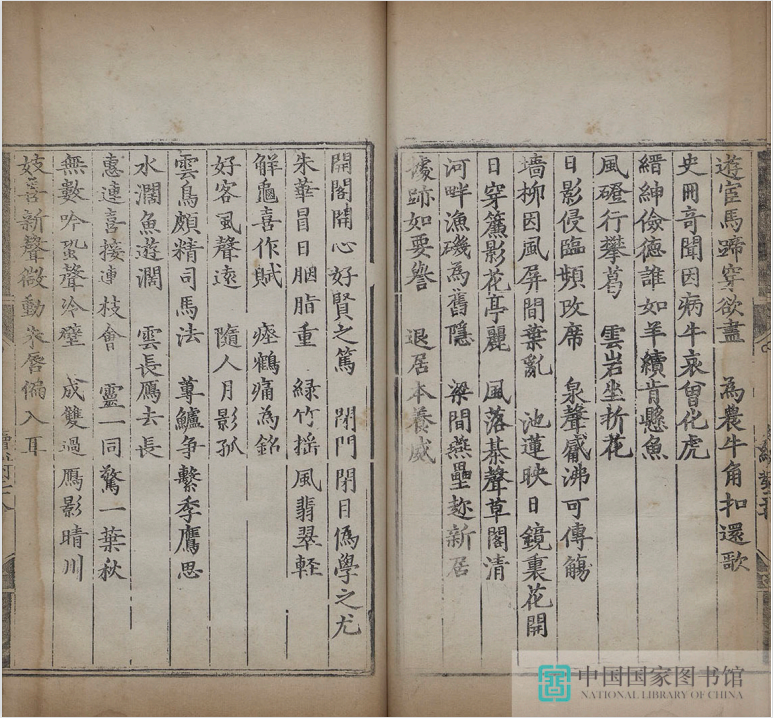 遊宦馬蹄穿欲盡　為農牛角扣還歌
史冊奇聞因病牛哀曾化虎
縉紳儉德誰如羊續肯懸魚
風磴行攀葛　雲岩坐折花
日影侵臨頻改席　泉聲觱沸可傳觴
墻柳因風屏間葉亂　池蓮映日鏡裏花開
日穿簾影花亭麗　風落棊聲草閣清
河畔漁磯為舊隱　梁間燕壘趂新居
據跡如要譽　退居本養威
開閣開心好賢之篤　閉門閉目僞學之尤
朱華冒日胭脂重　綠竹搖風翡翠輕
觧龜喜作賦　瘞鶴痛為銘
好客風聲遠　隨人月影孤
雲鳥頗精司馬法　蓴鱸爭繫季鷹思
水濶魚遊濶　雲長鴈去長
惠連喜接連枝會　靈一同驚一葉秋
無數吟蛩聲冷壁　成雙過鴈影晴川
妓喜新聲微動朱唇偏入耳
中国国家图书馆
NATIONAL LIBRARY OF CHINA